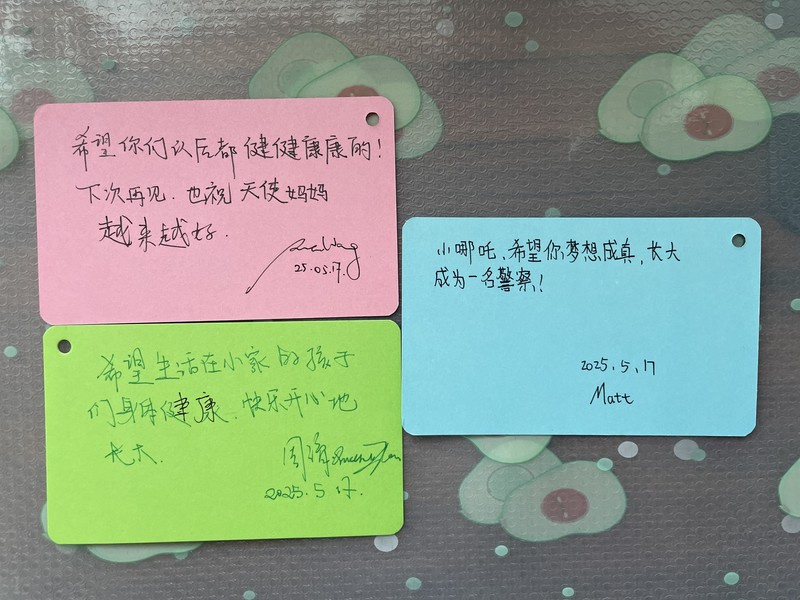 希望你们以后都健健康康的！
下次再见．也祝天使妈妈
越来越好．
25.05.17.
希望生活在小家的孩子
们身体健康．快乐开心地
长大．
2025.5.17.
小哪吒、希望你梦想成真，长大
成为一名警察！
2025.5.17
Matt